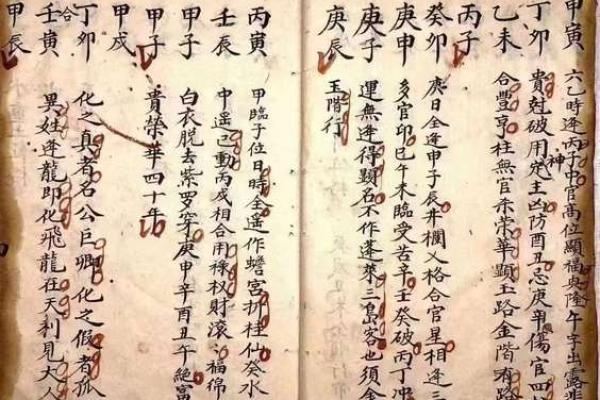 甲寅 六乙時逢丙子中官高位顯福與隆午字出露非
丁卯 貴尅破用神定主凶防酉丑忌庚辛傷官四
乙未 合豐亨柱無官未崇華顯玉路金階有路
丙子
癸卯 庚日全逢甲子辰井欄叉格合官星相逢三
庚申 多官印巳午未臨受苦辛壬癸破丙丁冲
庚子 運無逢得顯名不作蓬萊三島客也須金
庚辰 玉階行
丙寅 甲臨子位日時全遥作蟾宮折桂仙癸水
壬辰 中遥己動丙戌相合用祿权財滚福綿
甲子 白衣脱去紫罗穿庚申辛酉丑午絕富
甲子 貴榮華四十年
甲戌
丁卯 化之真者名公巨卿化之假者孤
合
壬寅 異姓逢龍即化飛龍在天利見大人
甲辰